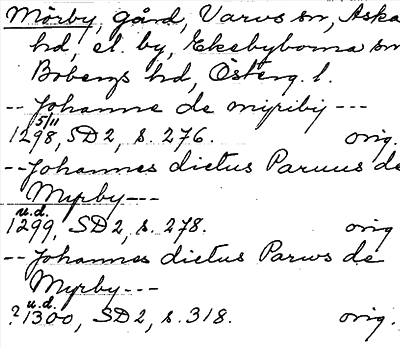 Mörby, gård, Varvs sn, Aska
hd, el. by, Ekebyborna sn
Bobergs hd, Österg. l.
-- Johanne de myriby ---
5/11
1298, SD 2, s. 276. orig.
-- Johannes dictus Paruus de
Myrby ---
u.d.
1299, SD 2, s. 278. orig
-- Johannes dictus Parws de
Myrby ---
u.d.
?1300, SD 2, s. 318. orig.